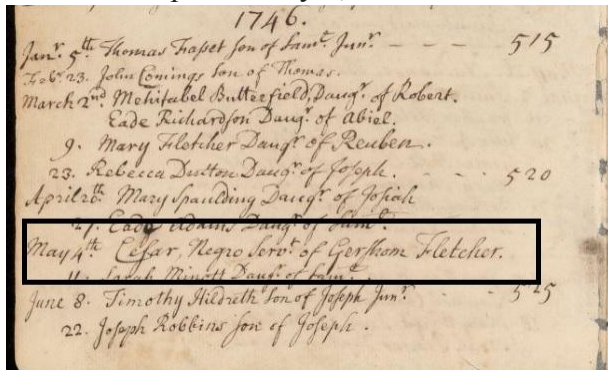 1746.
Janr. 5th. Thomas Traset son of Samll. Junr. - - - 515
Feb. 23. John Comings Son of Thomas.
March 2nd. Mehitabel Butterfield, Daugr. of Robert.
Eade Richardson Daugr. of Abiel.
9. Mary Fletcher Daugr of Reuben.
23. Rebecca Dutton Daugr of Joseph. - - - 520
April 20th. Mary Spaulding Daugr. of Josiah
27. Eade Adams Daugr. of Samll.
May 4th. Cesar, Negro Servt. of Gershom Fletcher.
11. Sarah Minott Daugr. of Samll.
June 8. Timothy Hildreth Son of Joseph Junr. - - 525
22. Joseph Robbins son of Joseph.